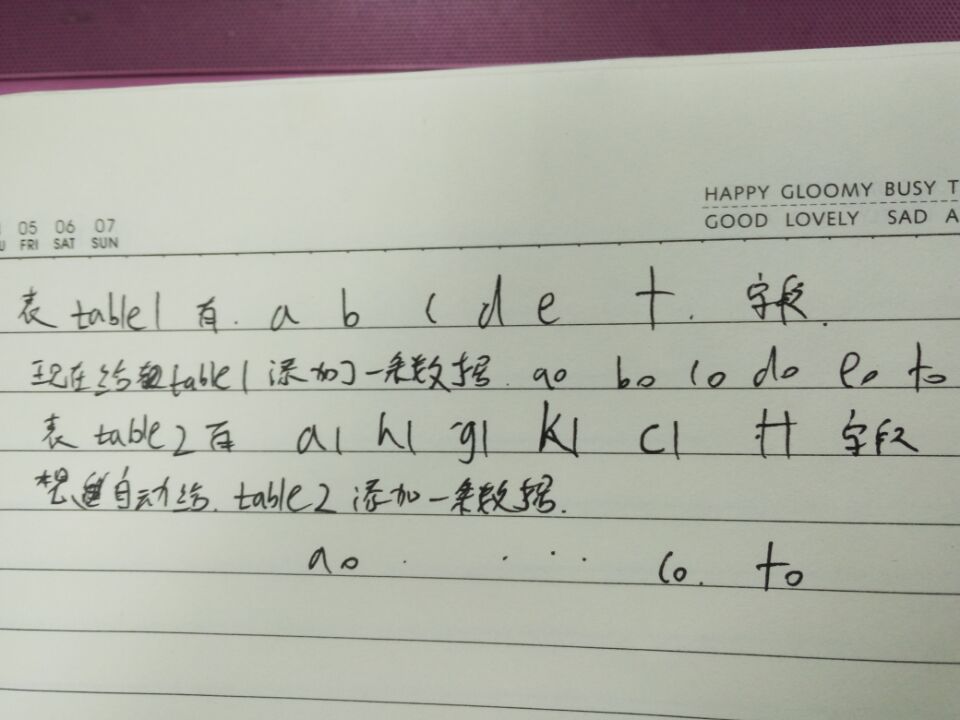 HAPPY GLOOMY BUSY T
05 06 07
GOOD LOVELY SAD A
U FRI SAT SUN
表 table1 有. a b c d e t. 字段.
现在给table1添加了一条数据. a0 b0 c0 d0 e0 t0
表 table2 有 a1 h1 g1 k1 c1 t1 字段
想自动给. table2 添加一条数据.
a0 . . . . c0. t0